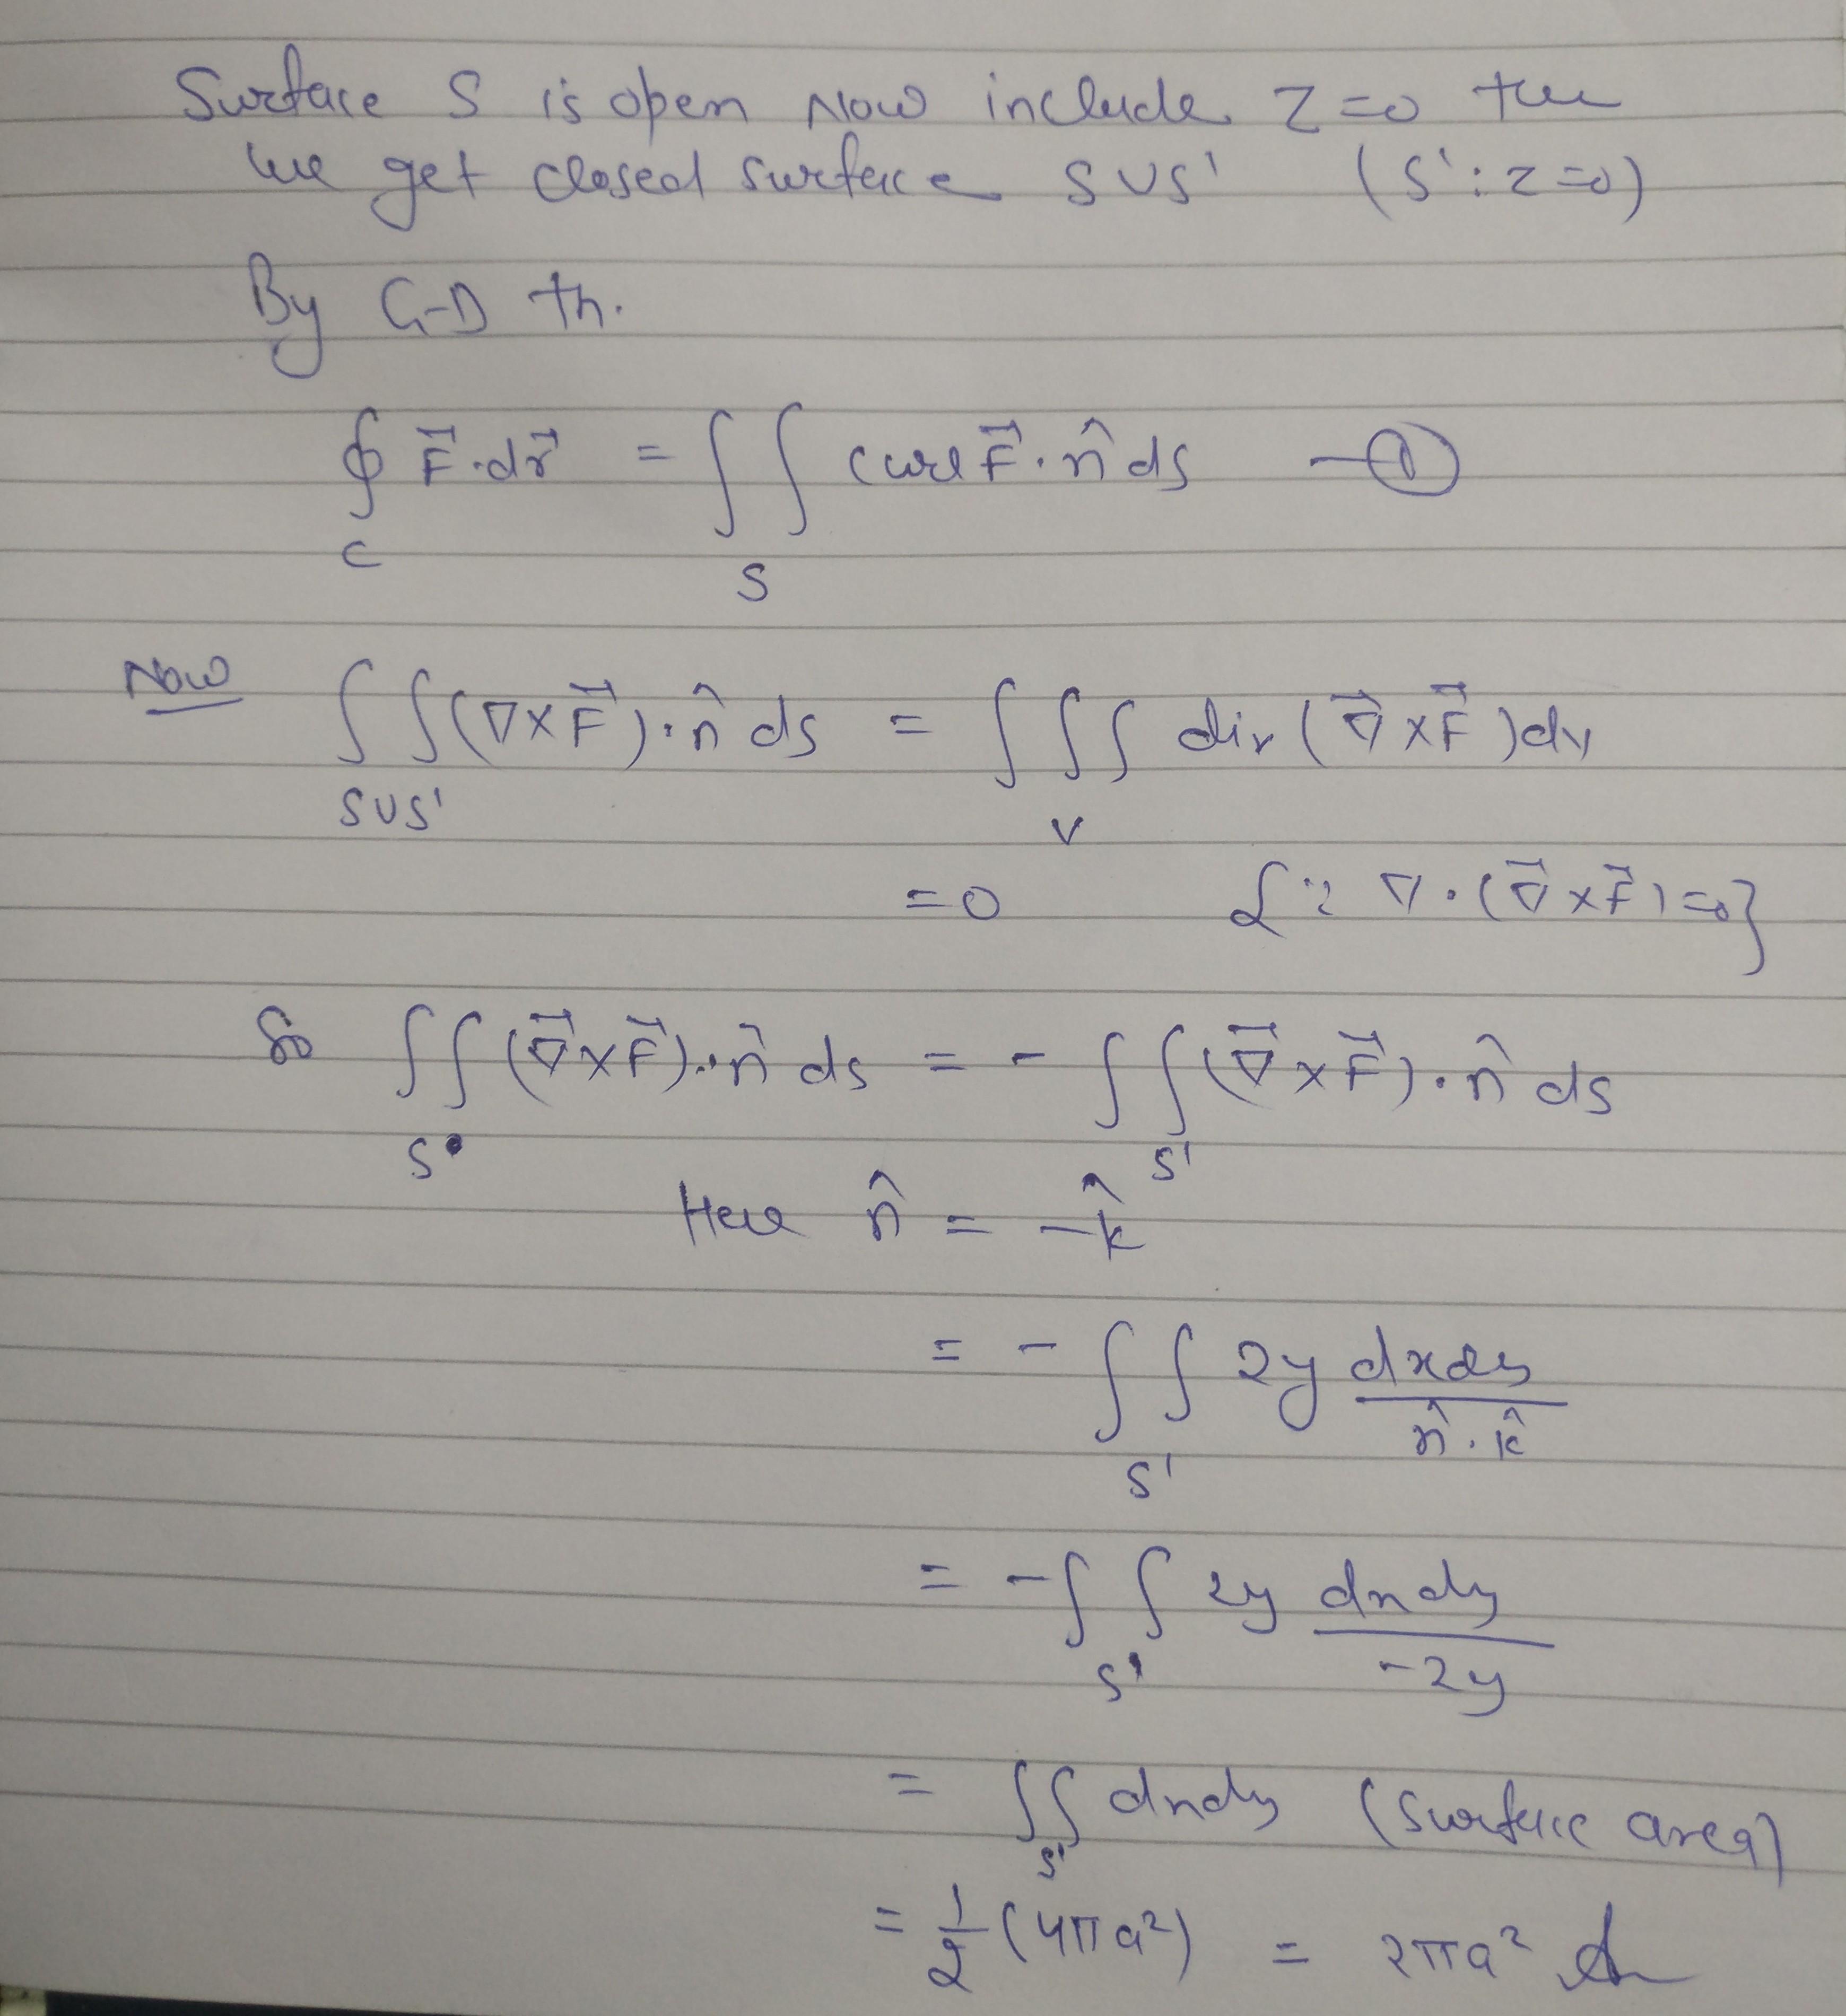 Surface S is open Now include Z=0 then
we get closed surface S∪S' (S': z=0)
By G-D th.
∮_C F⃗·dr⃗ = ∫∫_S curl F⃗·n̂ ds —①
Now ∫∫_{S∪S'} (∇×F⃗)·n̂ ds = ∫∫∫_V div(∇⃗×F⃗)dv
=0 {∵ ∇·(∇⃗×F⃗)=0}
So ∫∫_S (∇⃗×F⃗)·n̂ ds = -∫∫_{S'} (∇⃗×F⃗)·n̂ ds
Here n̂ = -k̂
= -∫∫_{S'} 2y dxdy/(n̂·k̂)
= -∫∫_{S'} 2y dxdy/(-2y)
= ∫∫_{S'} dxdy (Surface area)
= 1/2 (4πa²) = 2πa²